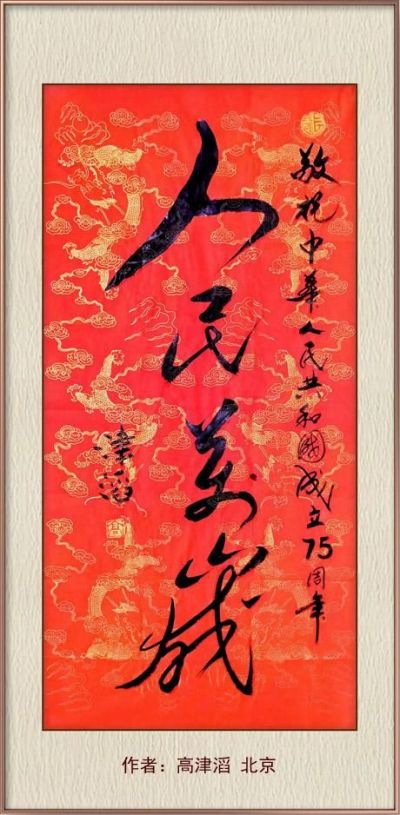 敬祝中華人民共和國成立75周年
人民萬歲
津滔
作者：高津滔 北京